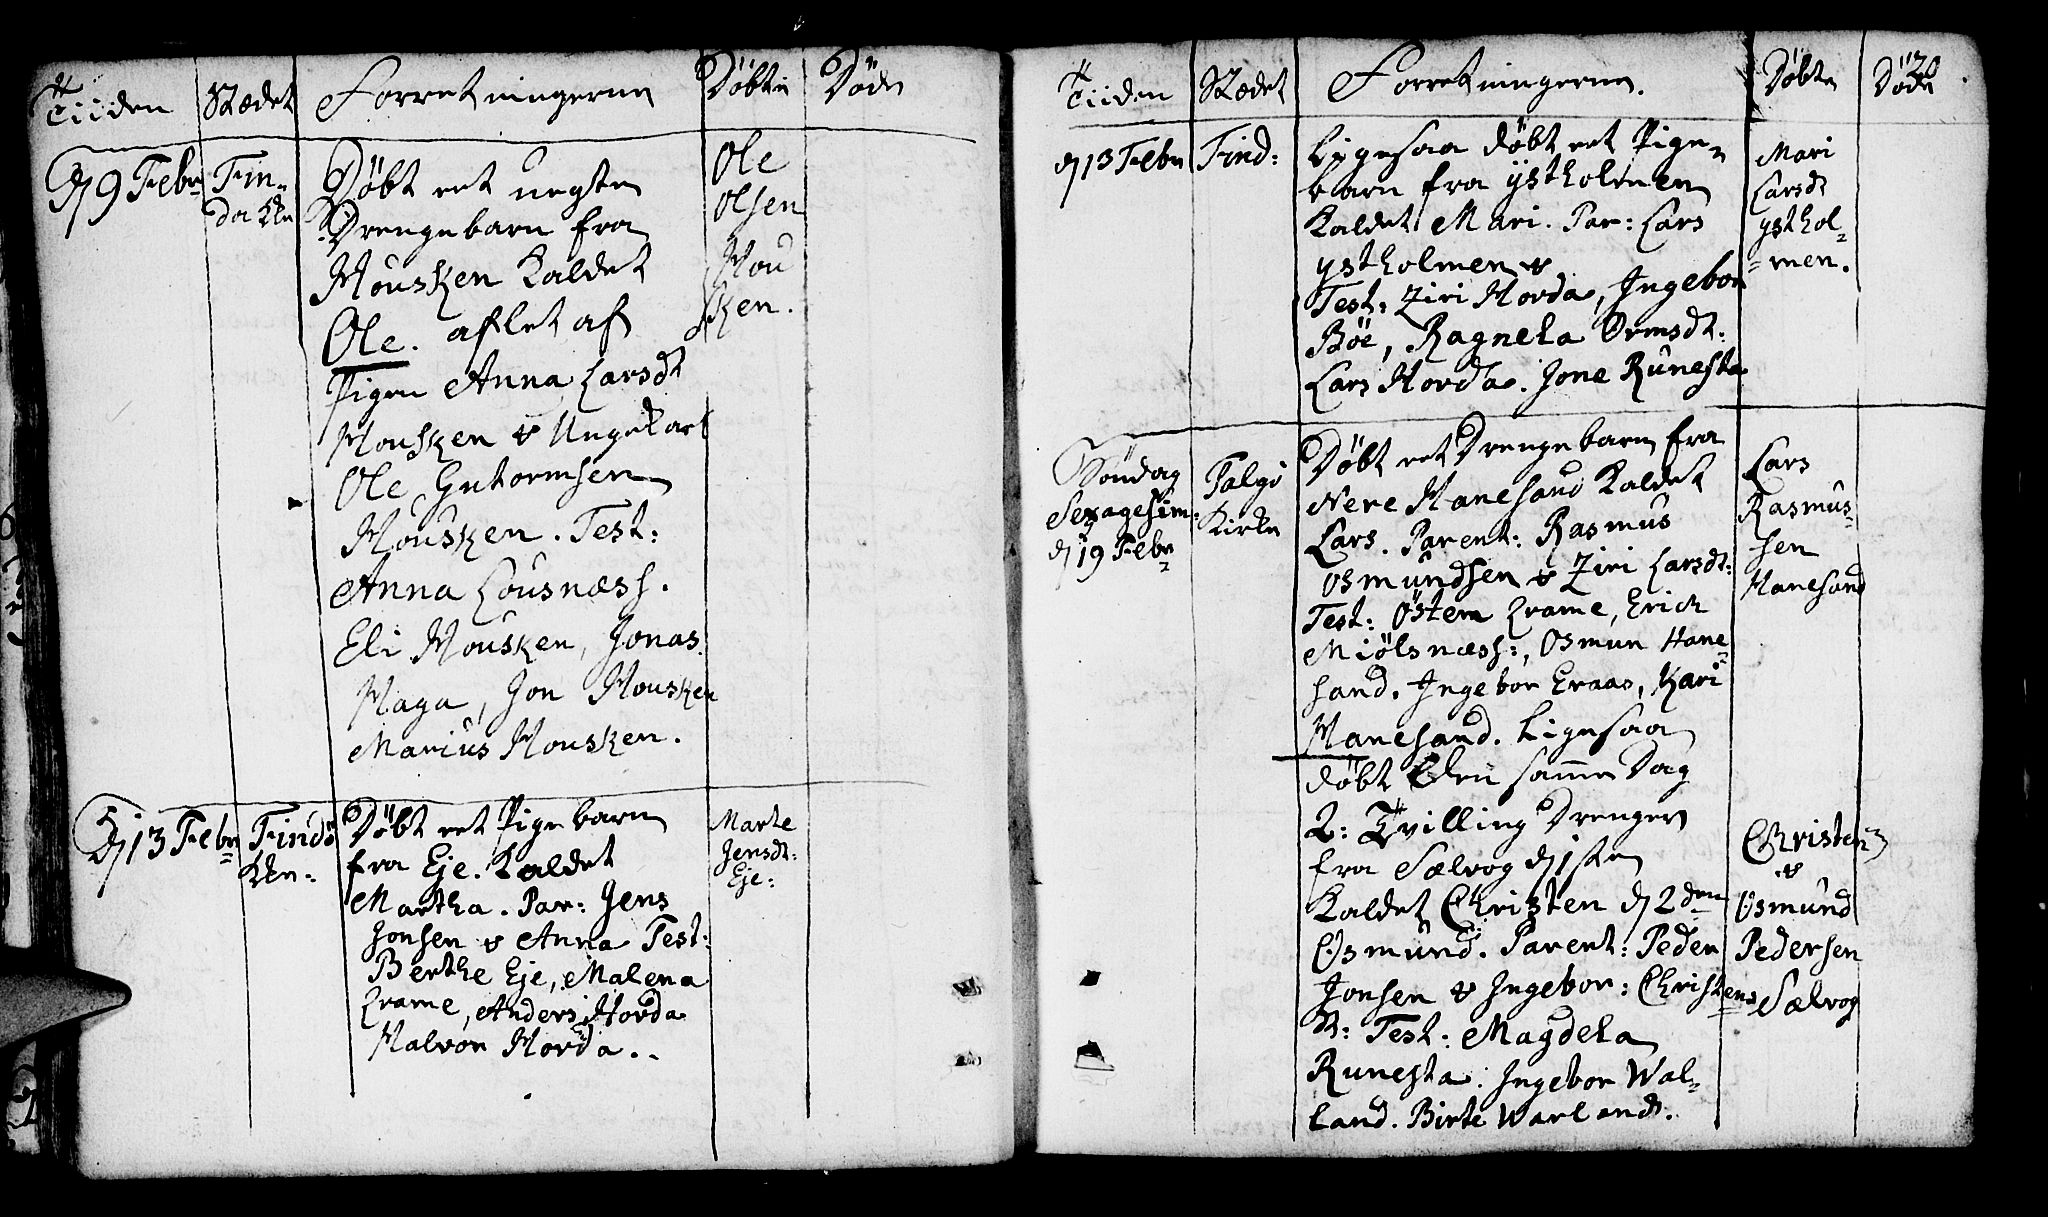 Tiiden Stædet Forretningerne Døbte Døde
d 9 Febr Fin-
da Kke
Døbt eet uegte
Drengebarn fra
Housken Kaldet
Ole. aflet af
Pigen Anna Larsdt
Housken & Ungekarl
Ole Gutormsen
Housken. Test:
Anna Lousnæss.
Eli Housken, Jonas
Haga, Jon Housken
Marius Housken.
Ole
Olsen
Hou
sken.
d 13 Febr Findö
Kke:
Døbt eet Pigebarn
fra Eje. Kaldet
Martha. Par: Jens
Jonsen & Anna Test:
Berthe Eje, Malena
Lrame, Anders Horda
Halvor Horda..
Marte
Jensdt:
Eje:
Tiiden Stædet Forretningerne. Døbte Døde
20
d 13 Febr Find:
Ligesaa døbt eet Pige-
barn fra ystholmen
Kaldet Mari. Par: Lars
ystholmen &
Test: Ziri Horda, Ingebor
Böe, Ragnela Ormsdt:
Lars Horda. Jone Runesta
Mari
Larsdt
ysthol-
men.
Söndag
Sexagesim:
d 19 Febr
Talgö
Kirke
Døbt eet Drengebarn fra
Nere Hanesand Kaldet
Lars. Parent: Rasmus
Osmundsen & Ziri Larsdt:
Test: Östen Lrame, Erich
Miölsnæss:, Osmun Hane-
sand. Ingebor Eraas, Kari
Hanesand. Ligesaa
døbt Eden samme Dag
2: Tvilling Drenger
fra Sælvog d 1ste
Kaldet Christen d 2den
Osmund. Parent: Peder
Jonsen & Ingebor: Christens
D: Test: Magdela
Runesta. Ingebor Wal-
land. Birte Warlands.
Lars
Rasmus-
sen
Hanesand
Christen
&
Osmund
Pedersen
Sælvog